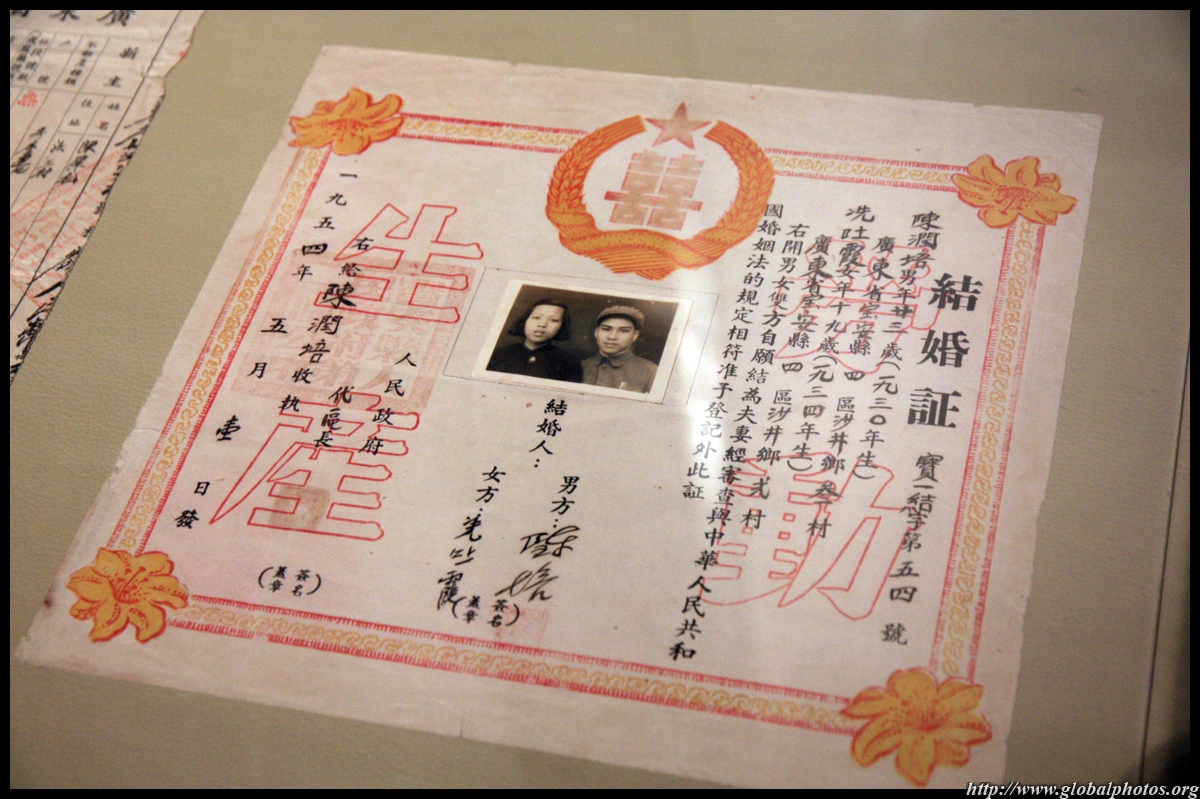 結婚証
寶一結字第五四號
陳潤培男年廿三歲(一九三〇年生)
廣東省宝安縣四區沙井鄉叁村
冼吐霞女年十九歲(一九三四年生)
廣東省宝安縣四區沙井鄉弍村
右開男女雙方自願結為夫妻經審查與中華人民共和
國婚姻法的規定相符准予登記外此証
囍
勞動
生產
結婚人:
男方:
女方:冼吐霞
(簽名蓋章)
人民政府
代區長
(簽名蓋章)
右給陳潤培收執
一九五四年五月壹日發
新主姓名
住址
http://www.globalphotos.org